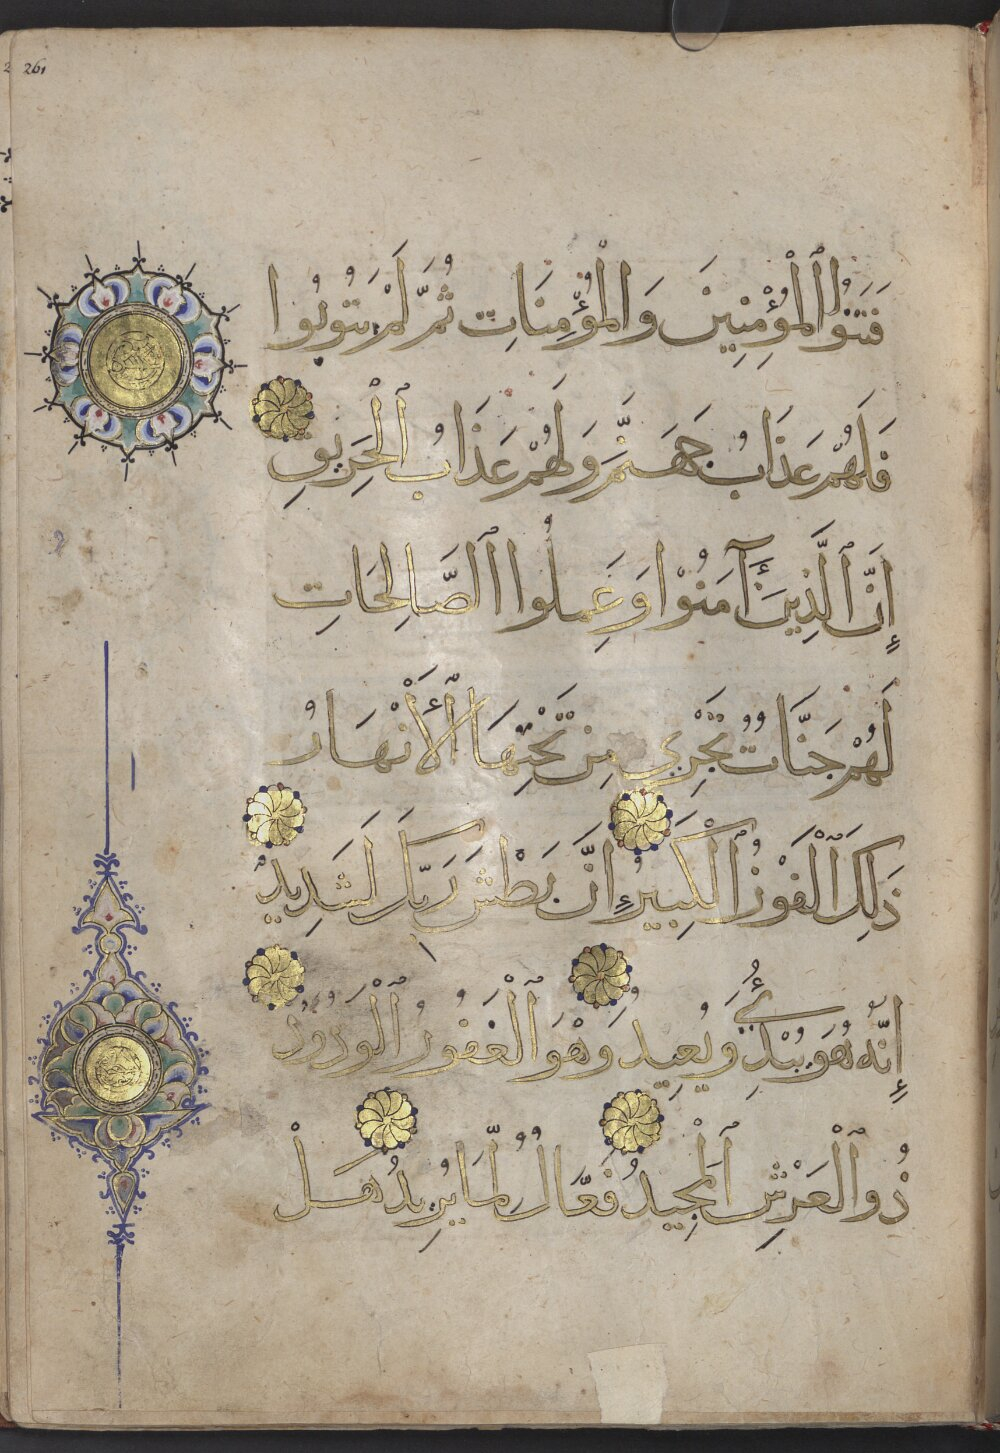 261
فَتَنُوا ٱلْمُؤْمِنِينَ وَالْمُؤْمِنَاتِ ثُمَّ لَمْ يَتُوبُوا
فَلَهُمْ عَذَابُ جَهَنَّمَ وَلَهُمْ عَذَابُ ٱلْحَرِيقِ
إِنَّ ٱلَّذِينَ آمَنُوْا وَعَمِلُوا ٱلصَّالِحَاتِ
لَهُمْ جَنَّاتٌ تَجْرِي مِنْ تَحْتِهَا ٱلْأَنْهَارُ
ذَلِكَ ٱلْفَوْزُ ٱلْكَبِيرُ إِنَّ بَطْشَ رَبِّكَ لَشَدِيدٌ
إِنَّهُ هُوَ يُبْدِئُ وَيُعِيدُ وَهُوَ ٱلْغَفُورُ ٱلْوَدُودُ
ذُو ٱلْعَرْشِ ٱلْمَجِيدُ فَعَّالٌ لِمَا يُرِيدُ هَلْ